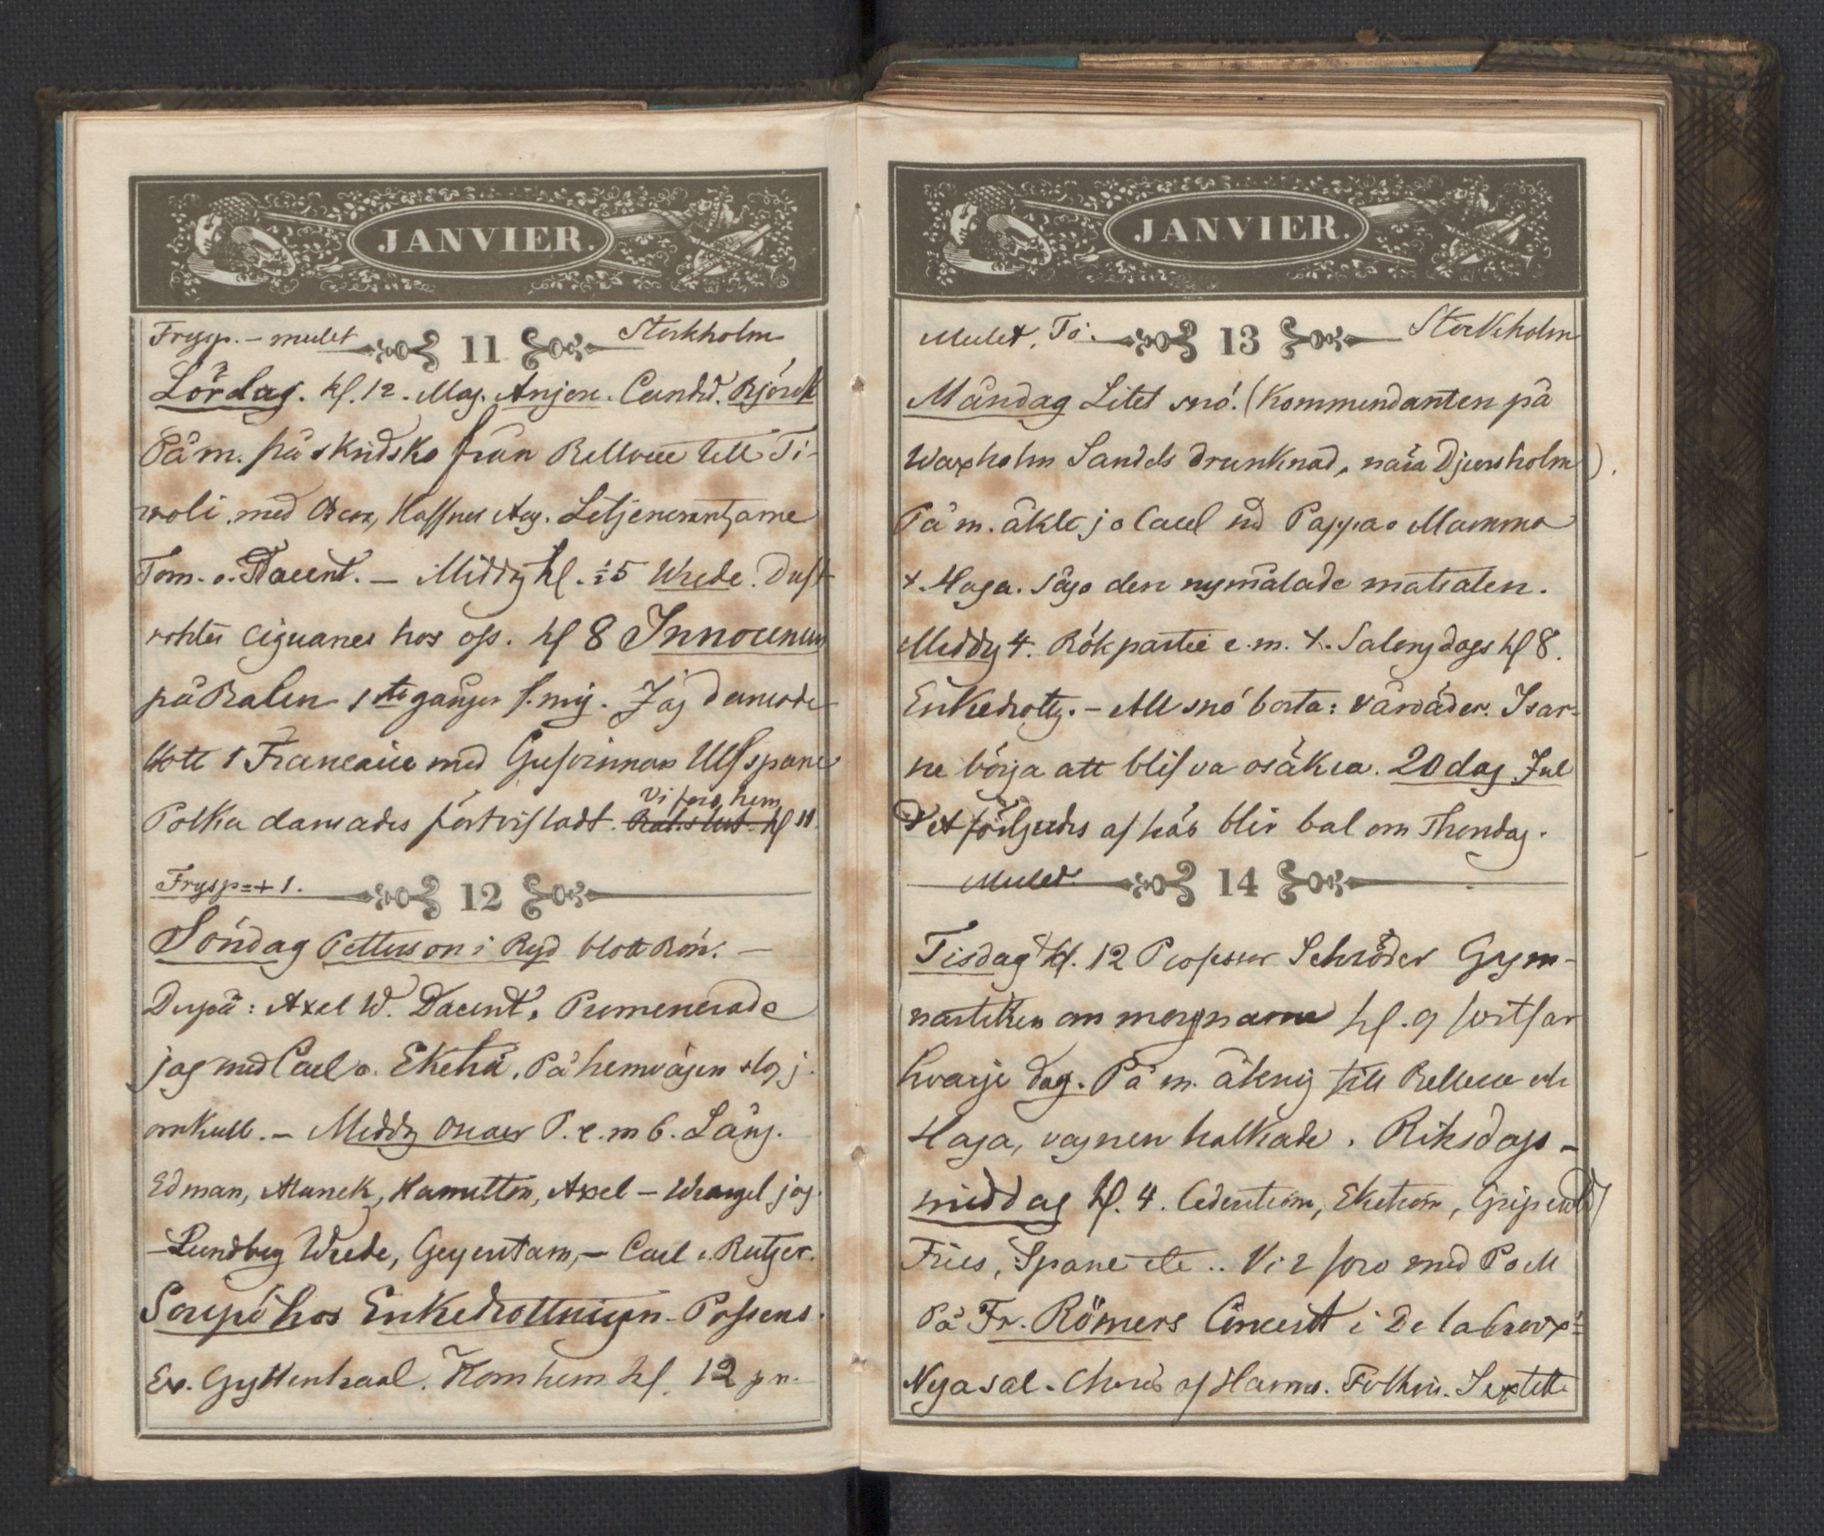 JANVIER.
Frysp. - mulet 11 Stockholm
Lördag. kl. 12. Mag. Anjou. Candid. Björck
På m. på skridsko från Bellevue till Ti-
voli med Oscar, Haffner Aug. Liljencrantzarne
Tom. o. Dacent. – Middg kl. ½5 Wrede.
cigarrer hos oss. kl 8 Innocencen
på Balen 1sta gången f. mig. Jag dansade
blott 1 Francaise med Grefvinnan Ulf Spane
Vi foro hem
Polka dansades förtvifladt. Bal. slut. kl 11.
Frysp = + 1. 12
Söndag Petterson i Ryd blott Bön. –
Dupá: Axel W. Dacent. Promenerade
jag med Carl o. Ekehá. På hemvägen slog j.
omkull. – Middg Oscars P. e. m 6. Lång.
Edman, Munck, Hamilton, Axel – Wrangel jag.
– Lundberg Wrede, Geyer – Carl o. Rutger.
Soupé hos Enkedrottningen. Possens.
Ex. Gyllenkraal. Kom hem kl. 12 p n.
JANVIER.
Mulet, Tö. 13 Stockholm
Måndag Litet snö. (Kommendanten på
Waxholm Sandels drunknad, nära Djursholm).
På m. åkte j o Carl med Pappa o Mamma
t. Haga. Sågo den nymålade matsalen.
Middg 4. Rökpartie e. m. t. Salongdags kl 8.
Enkedrottg. – All snö borta: vårväder. Isar-
ne börja att blifva osäkra. 20 dag Jul
Det följdes af här blir bal om Thorsdag.
Mulet. 14
Tisdag kl. 12 Professor Schröder Gym-
nastiken om morgnarne kl. 9 fortfar
hvarje dag. På m. åkning till Bellevue och
Haga, vagnen halkade. Riksdags-
middag kl. 4. Cederström, Ekström, Gripenwald
Fries, Spane etc.. Vi 2 foro med P o M
På Fr. Römers Concert i De la Croix's
Nya sal. Chörer af Harm. Folkvis. Sextett